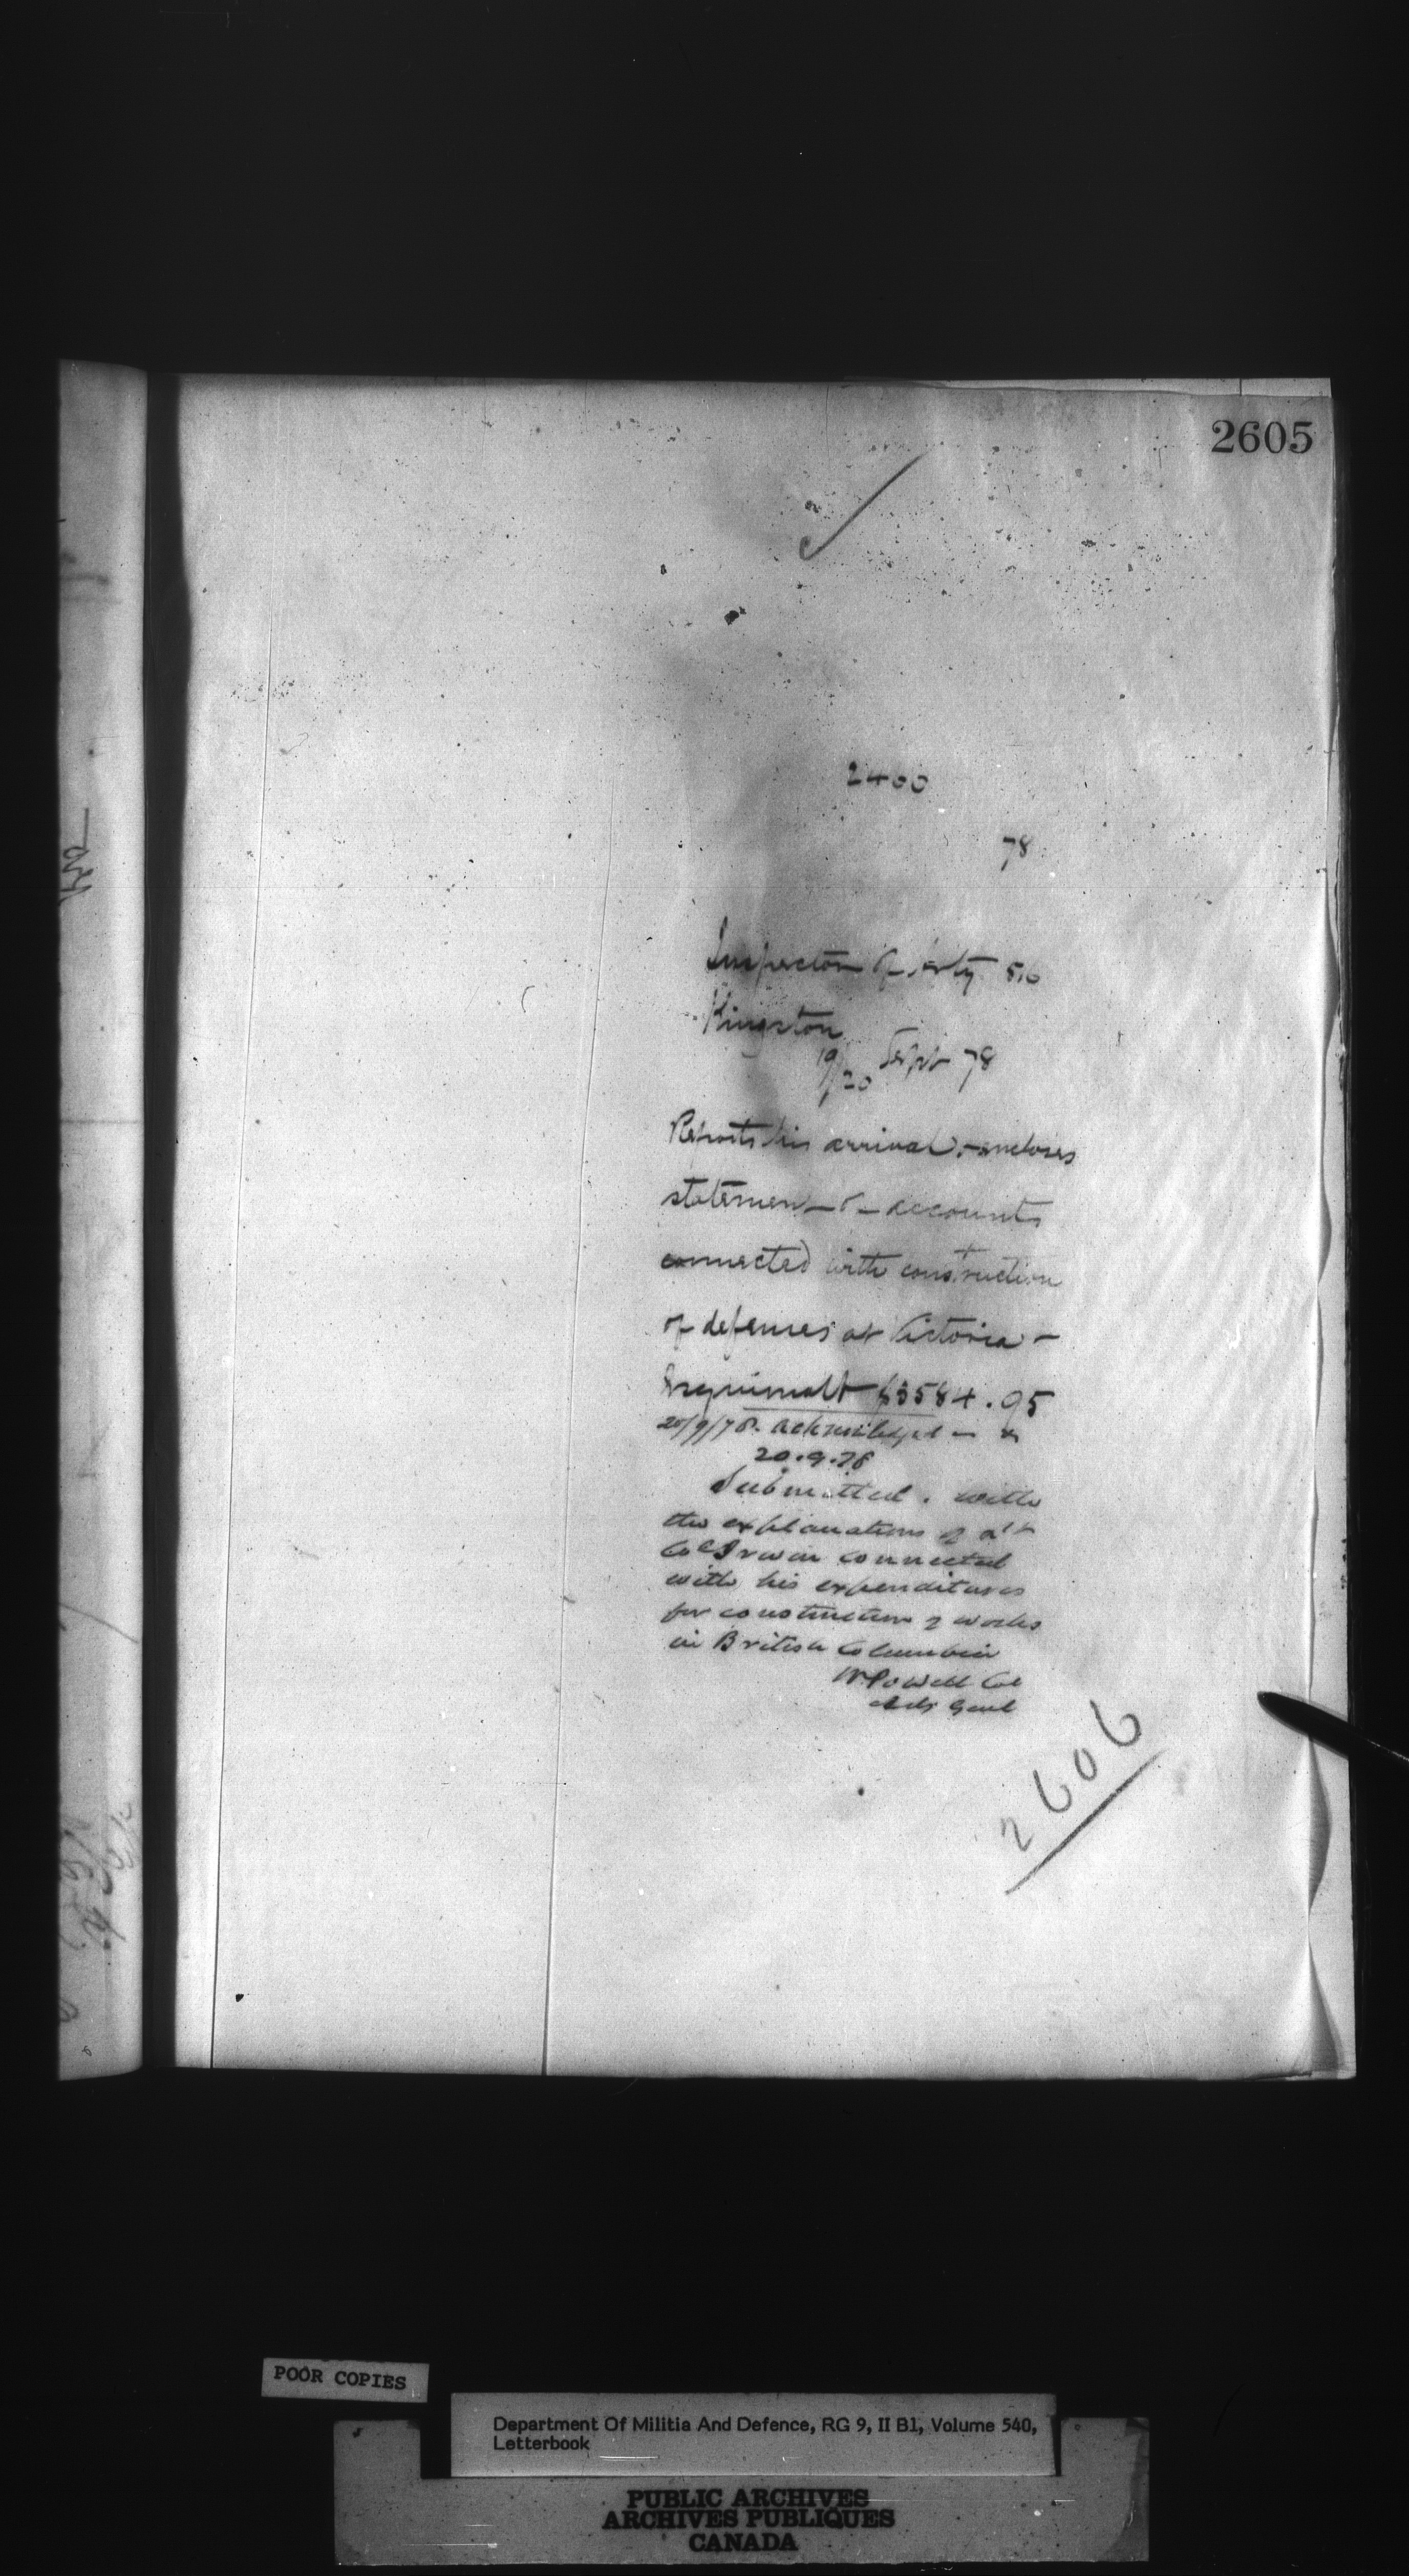 2605
2400
78
Inspector of Arty
Kingston
19/20 Sept 78
Reports his arrival, encloses
statement of accounts
connected with construction
of defences at Victoria -
Esquimalt $3584.95
20/9/78. acknowledged
20.9.78
Submitted. with
the explanations of Lt
Col Irwin connected
with his expenditures
for construction of works
in British Columbia
WPowell Col
Adj Genl
2606
POOR COPIES
Department Of Militia And Defence, RG 9, II B1, Volume 540,
Letterbook
PUBLIC ARCHIVES
ARCHIVES PUBLIQUES
CANADA